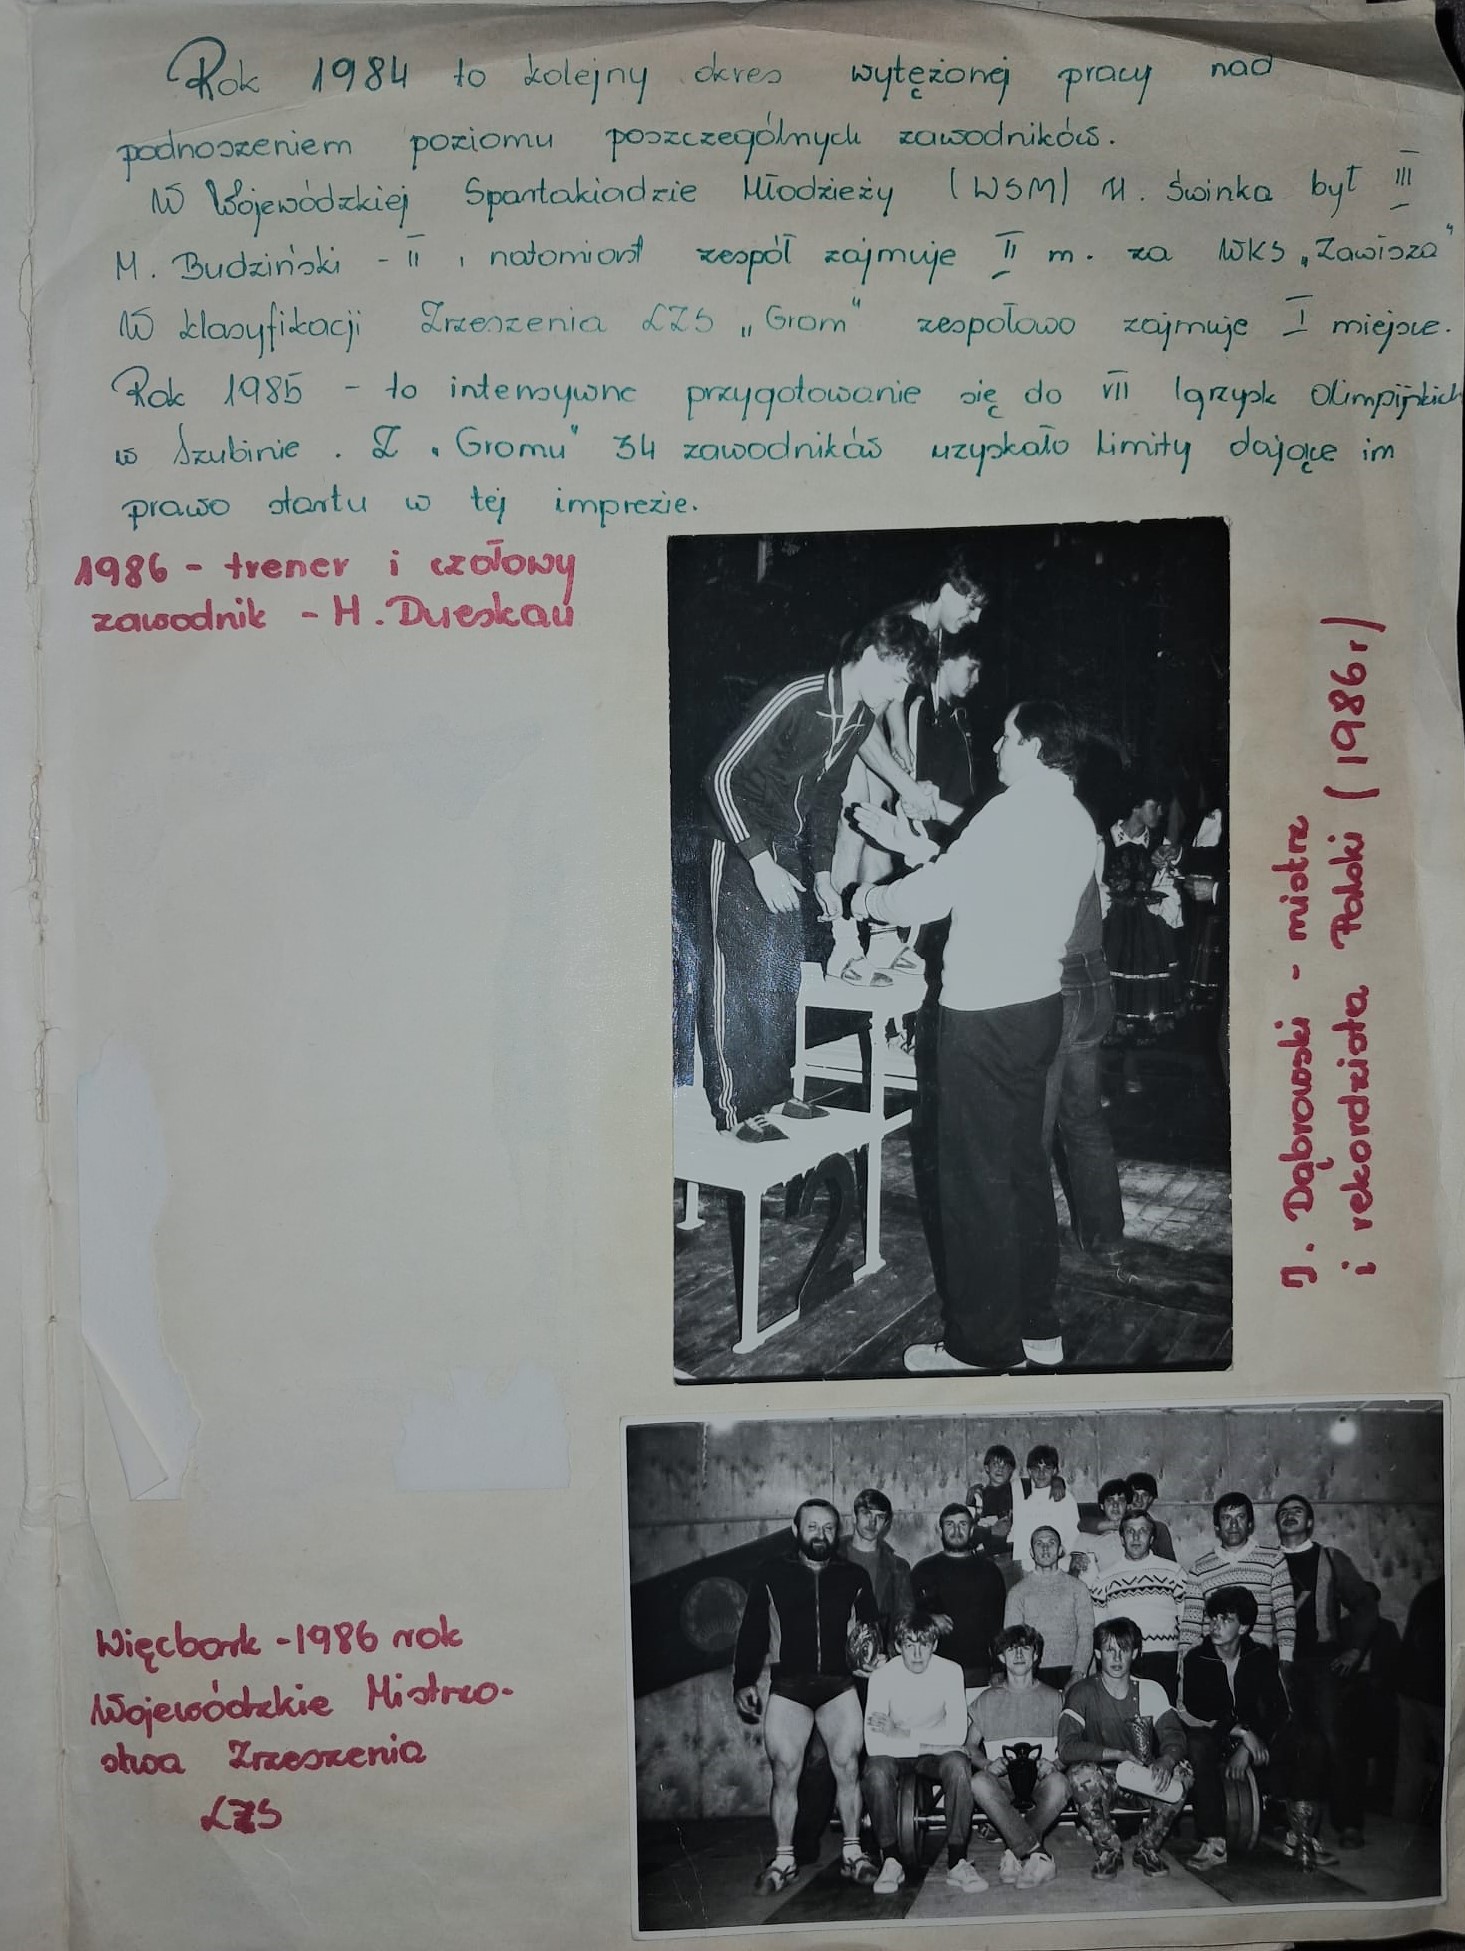 Rok 1984 to kolejny okres wytężonej pracy nad
podnoszeniem poziomu poszczególnych zawodników.
W Wojewódzkiej Spartakiadzie Młodzieży (WSM) M. Świnka był III
M. Budziński - II, natomiast zespół zajmuje II m. za WKS „Zawisza”
W klasyfikacji Zrzeszenia LZS „Grom” zespołowo zajmuje I miejsce.
Rok 1985 - to intensywne przygotowanie się do VII Igrzysk Olimpijskich
w Szubinie. Z „Gromu” 34 zawodników uzyskało limity dające im
prawo startu w tej imprezie.
1986 - trener i czołowy
zawodnik - H. Dueskau
J. Dąbrowski - mistrz
i rekordzista Polski (1986 r)
2
Więcbork - 1986 rok
Wojewódzkie Mistrzo-
stwa Zrzeszenia
LZS